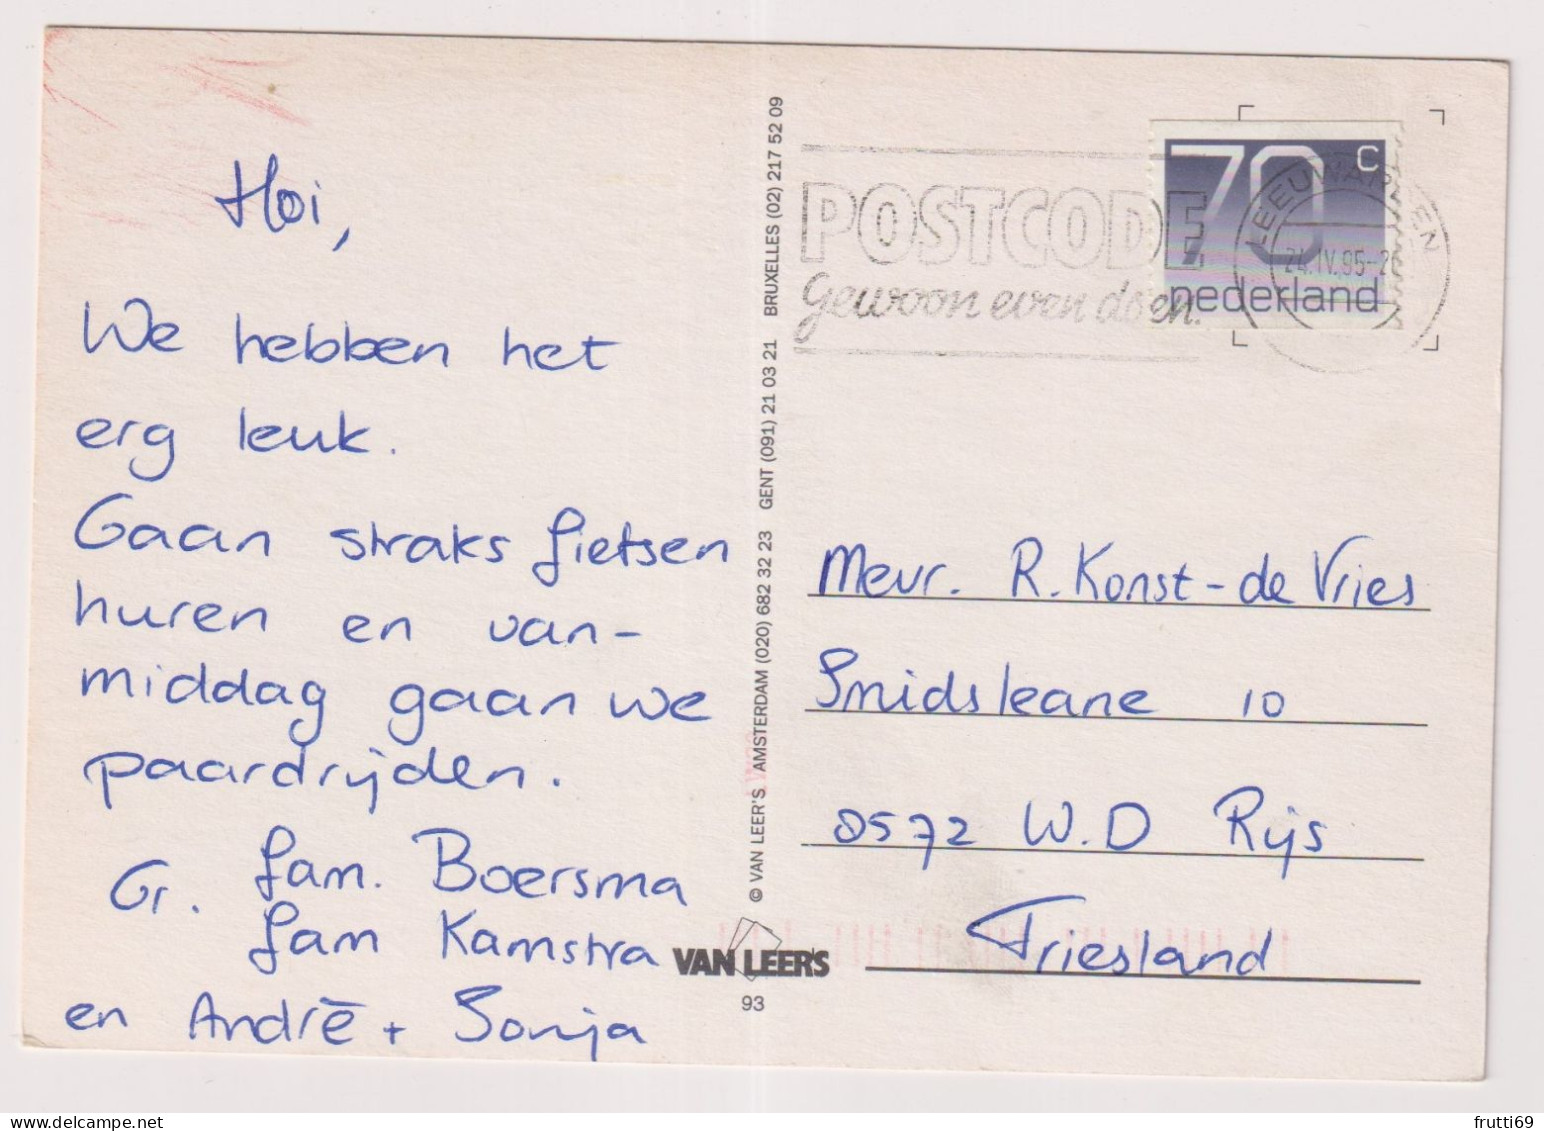 Hoi,
We hebben het
erg leuk.
Gaan straks fietsen
huren en van-
middag gaan we
paardrijden.
Gr. fam. Boersma
fam Kamstra
en André + Sonja
© VAN LEER'S AMSTERDAM (020) 682 32 23 GENT (091) 21 03 21 BRUXELLES (02) 217 52 09
VAN LEER'S
93
POSTCODE
Gewoon even doen.
70 c
nederland
LEEUWARDEN
24.IV.95-2
Mevr. R. Konst-de Vries
Smidsleane 10
8572 W.D Rijs
Friesland
frutti69